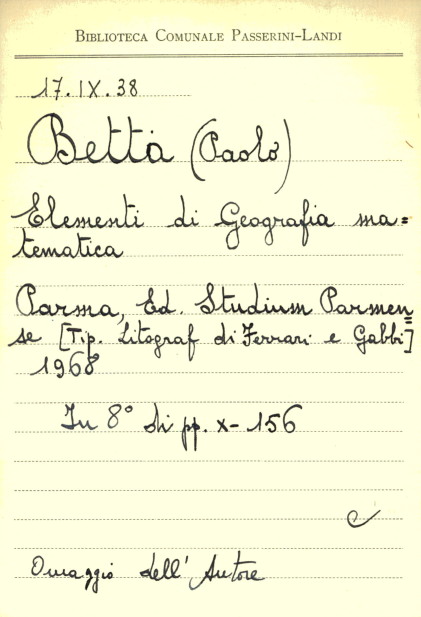 BIBLIOTECA COMUNALE PASSERINI-LANDI
17.IX.38
Betta (Paolo)
Elementi di Geografia ma=
tematica
Parma, Ed. Studium Parmen=
se [Tip. Litograf di Ferrari e Gabbi]
1968
In 8° di pp. X-156
Omaggio dell'Autore